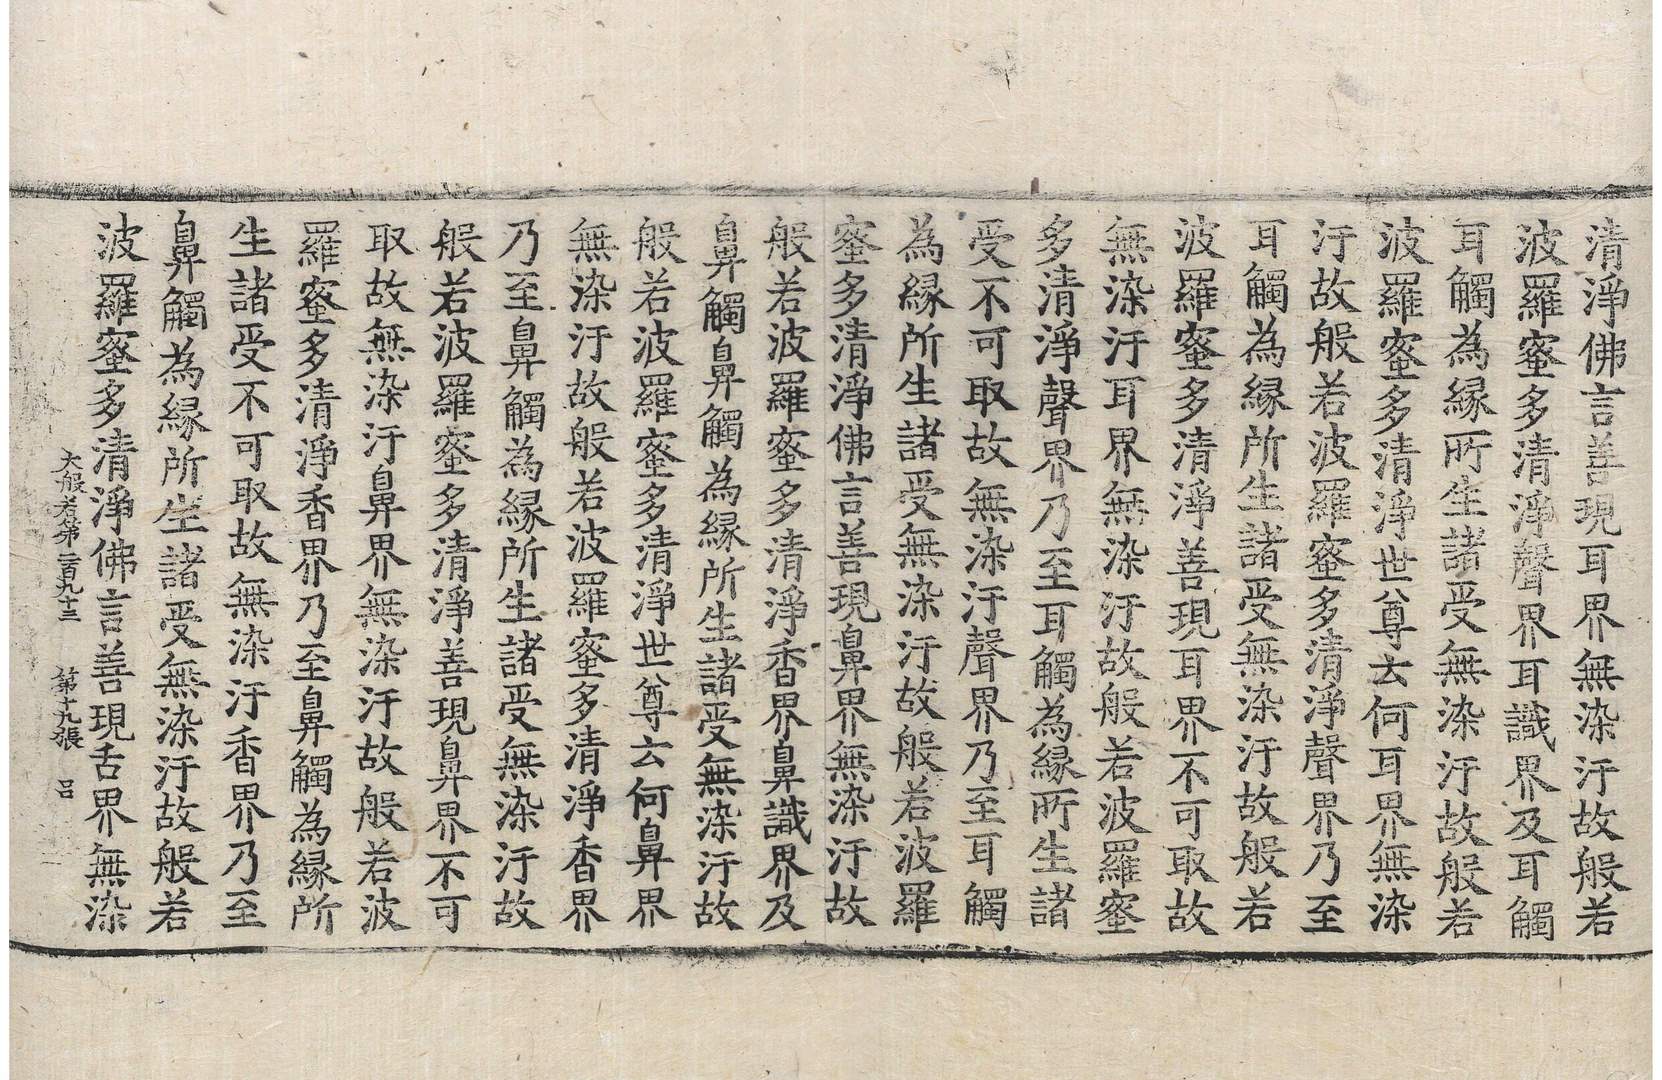 清淨佛言善現耳界無染汙故般若
波羅蜜多清淨聲界耳識界及耳觸
耳觸為縁所生諸受無染汙故般若
波羅蜜多清淨世尊云何耳界無染
汙故般若波羅蜜多清淨聲界乃至
耳觸為縁所生諸受無染汙故般若
波羅蜜多清淨善現耳界不可取故
無染汙耳界無染汙故般若波羅蜜
多清淨聲界乃至耳觸為縁所生諸
受不可取故無染汙聲界乃至耳觸
為縁所生諸受無染汙故般若波羅
蜜多清淨佛言善現鼻界無染汙故
般若波羅蜜多清淨香界鼻識界及
鼻觸鼻觸為縁所生諸受無染汙故
般若波羅蜜多清淨世尊云何鼻界
無染汙故般若波羅蜜多清淨香界
乃至鼻觸為縁所生諸受無染汙故
般若波羅蜜多清淨善現鼻界不可
取故無染汙鼻界無染汙故般若波
羅蜜多清淨香界乃至鼻觸為縁所
生諸受不可取故無染汙香界乃至
鼻觸為縁所生諸受無染汙故般若
波羅蜜多清淨佛言善現舌界無染
大般若第二百九十三 第十九張 呂